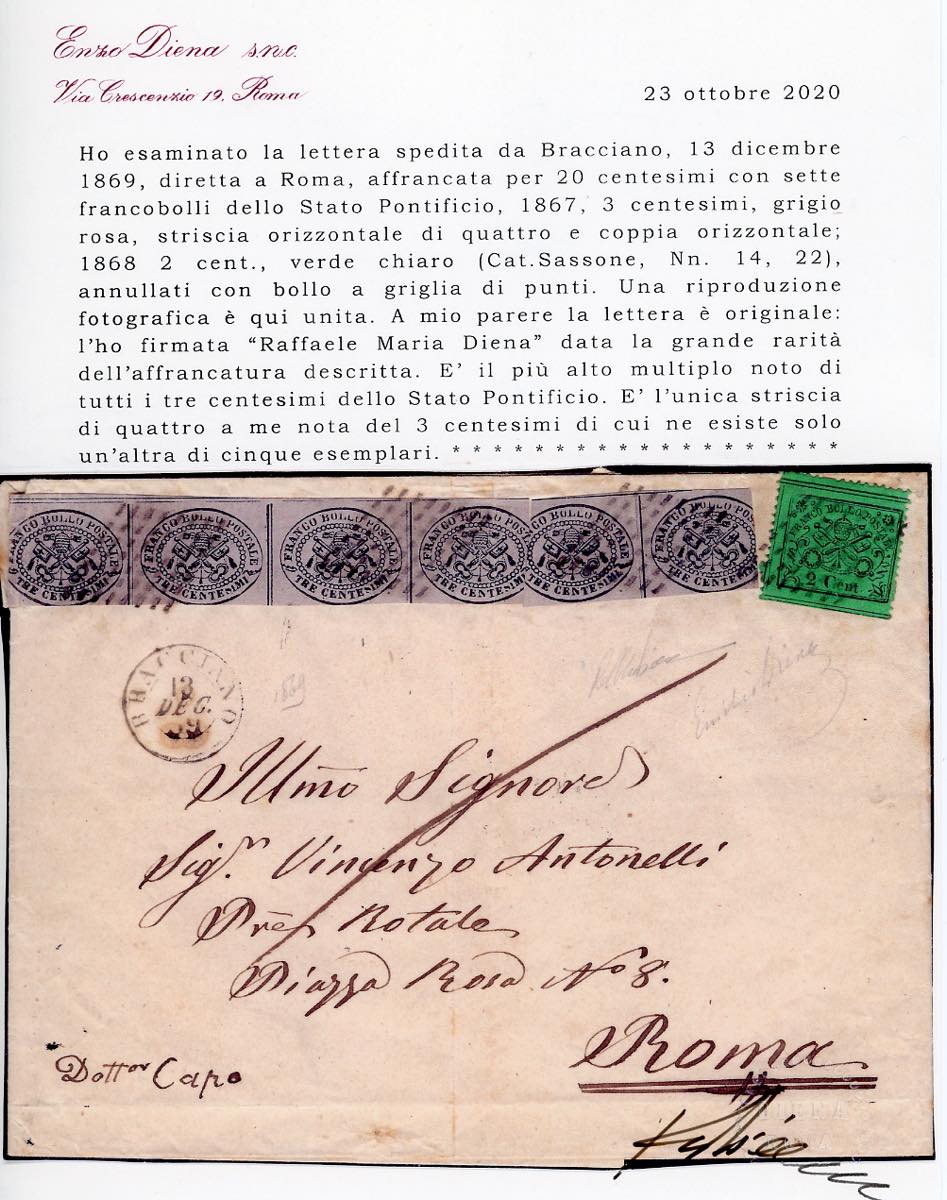 Enzo Diena s.n.c.
Via Crescenzio 19, Roma
23 ottobre 2020
Ho esaminato la lettera spedita da Bracciano, 13 dicembre
1869, diretta a Roma, affrancata per 20 centesimi con sette
francobolli dello Stato Pontificio, 1867, 3 centesimi, grigio
rosa, striscia orizzontale di quattro e coppia orizzontale;
1868 2 cent., verde chiaro (Cat.Sassone, Nn. 14, 22),
annullati con bollo a griglia di punti. Una riproduzione
fotografica è qui unita. A mio parere la lettera è originale:
l'ho firmata “Raffaele Maria Diena” data la grande rarità
dell'affrancatura descritta. E' il più alto multiplo noto di
tutti i tre centesimi dello Stato Pontificio. E' l'unica striscia
di quattro a me nota del 3 centesimi di cui ne esiste solo
un'altra di cinque esemplari. * * * * * * * * * * * * * * * * * * *
FRANCO BOLLO POSTALE TRE CENTESIMI
FRANCO BOLLO POSTALE TRE CENTESIMI
FRANCO BOLLO POSTALE TRE CENTESIMI
FRANCO BOLLO POSTALE TRE CENTESIMI
FRANCO BOLLO POSTALE TRE CENTESIMI
FRANCO BOLLO POSTALE TRE CENTESIMI
FRANCO BOLLO POSTALE
2 Cent.
BRACCIANO
13
DEC.
69
1869
Emilio Diena
Illmo Signore
Sigr. Vincenzo Antonelli
Pre Rotale
Piazza Rosa No 8.
Roma
Dottor Capo